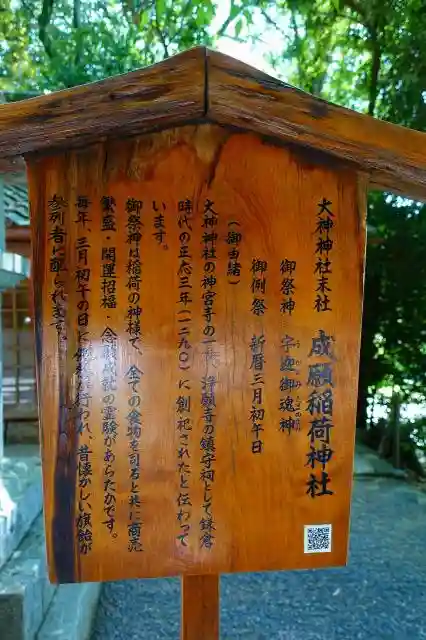 大神神社末社 成願稲荷神社
御祭神 宇迦御魂神
御例祭 新暦三月初午日
(御由緒)
大神神社の神宮寺の一つ浄願寺の鎮守祠として鎌倉
時代の正応三年(一二九〇)に創祀されたと伝わって
います。
御祭神は稲荷の神様で、全ての食物を司ると共に商売
繁盛・開運招福・念願成就の霊験があらたかです。
毎年、三月初午の日に 行われ、昔懐かしい旗飴が
参列者に配られます。